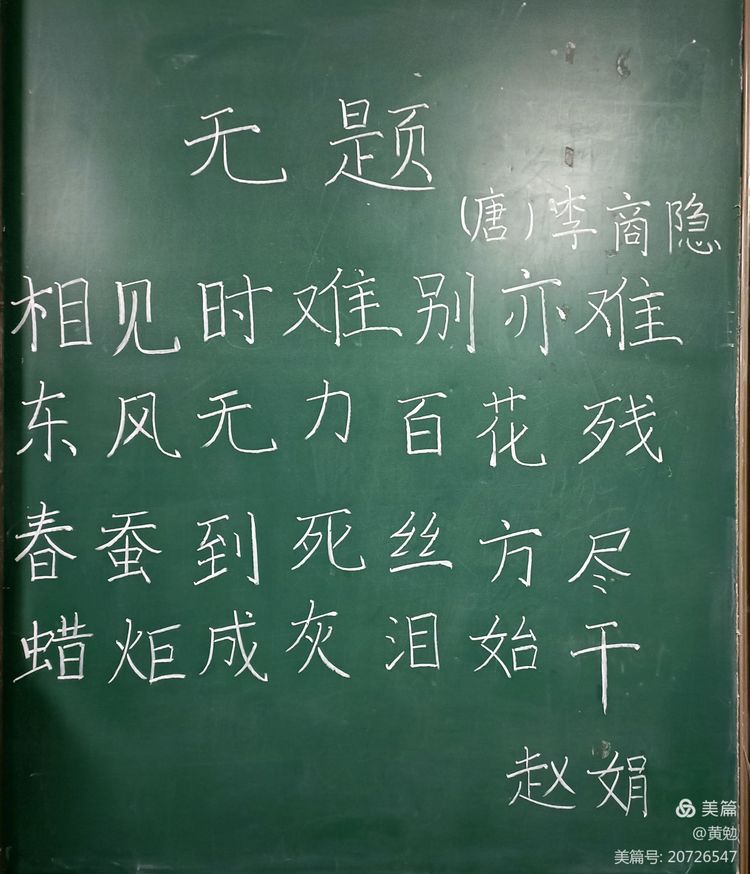 无题
(唐)李商隐
相见时难别亦难
东风无力百花残
春蚕到死丝方尽
蜡炬成灰泪始干
赵娟
美篇
@黄勉
美篇号: 20726547